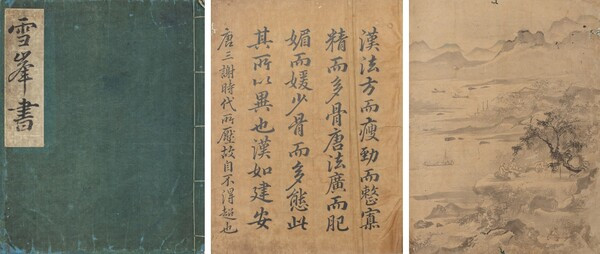 雪峯書
漢法方而瘦勁而整寡
精而多骨唐法廣而肥
媚而媛少骨而多態此
其所以異也漢如建安
唐三謝時代所壓故自不得超也